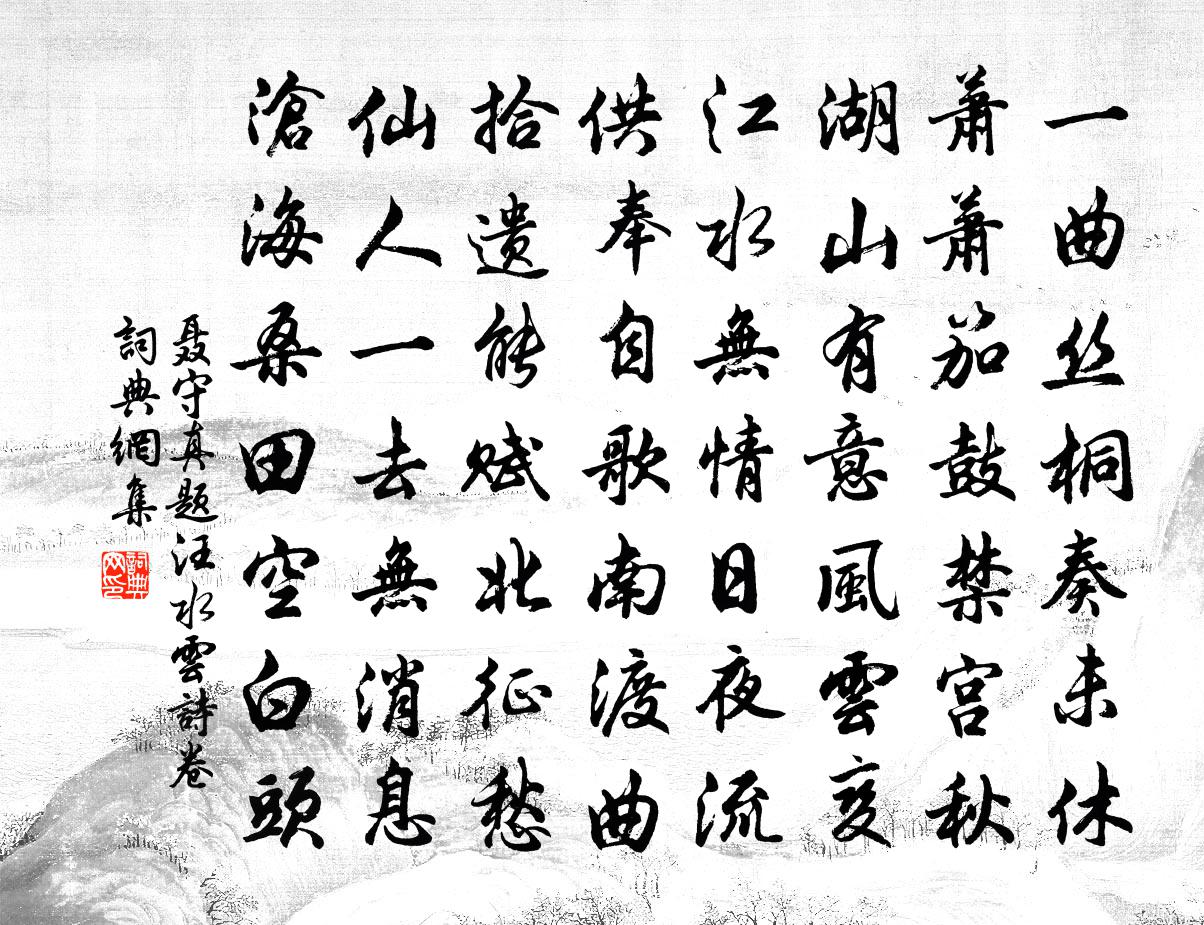 一曲丝桐奏未休
萧萧笳鼓禁宫秋
湖山有意風雲变
江水無情日夜流
供奉自歌南渡曲
拾遗能赋北征愁
仙人一去無消息
滄海桑田空白頭
聂守真题汪水雲詩卷
詞典網集
詞典
网印